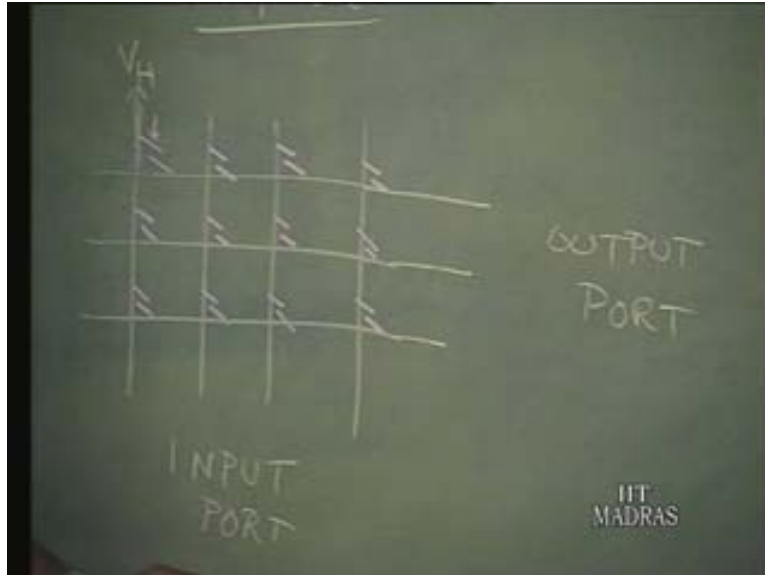 VH
OUTPUT
PORT
INPUT
PORT
IIT
MADRAS